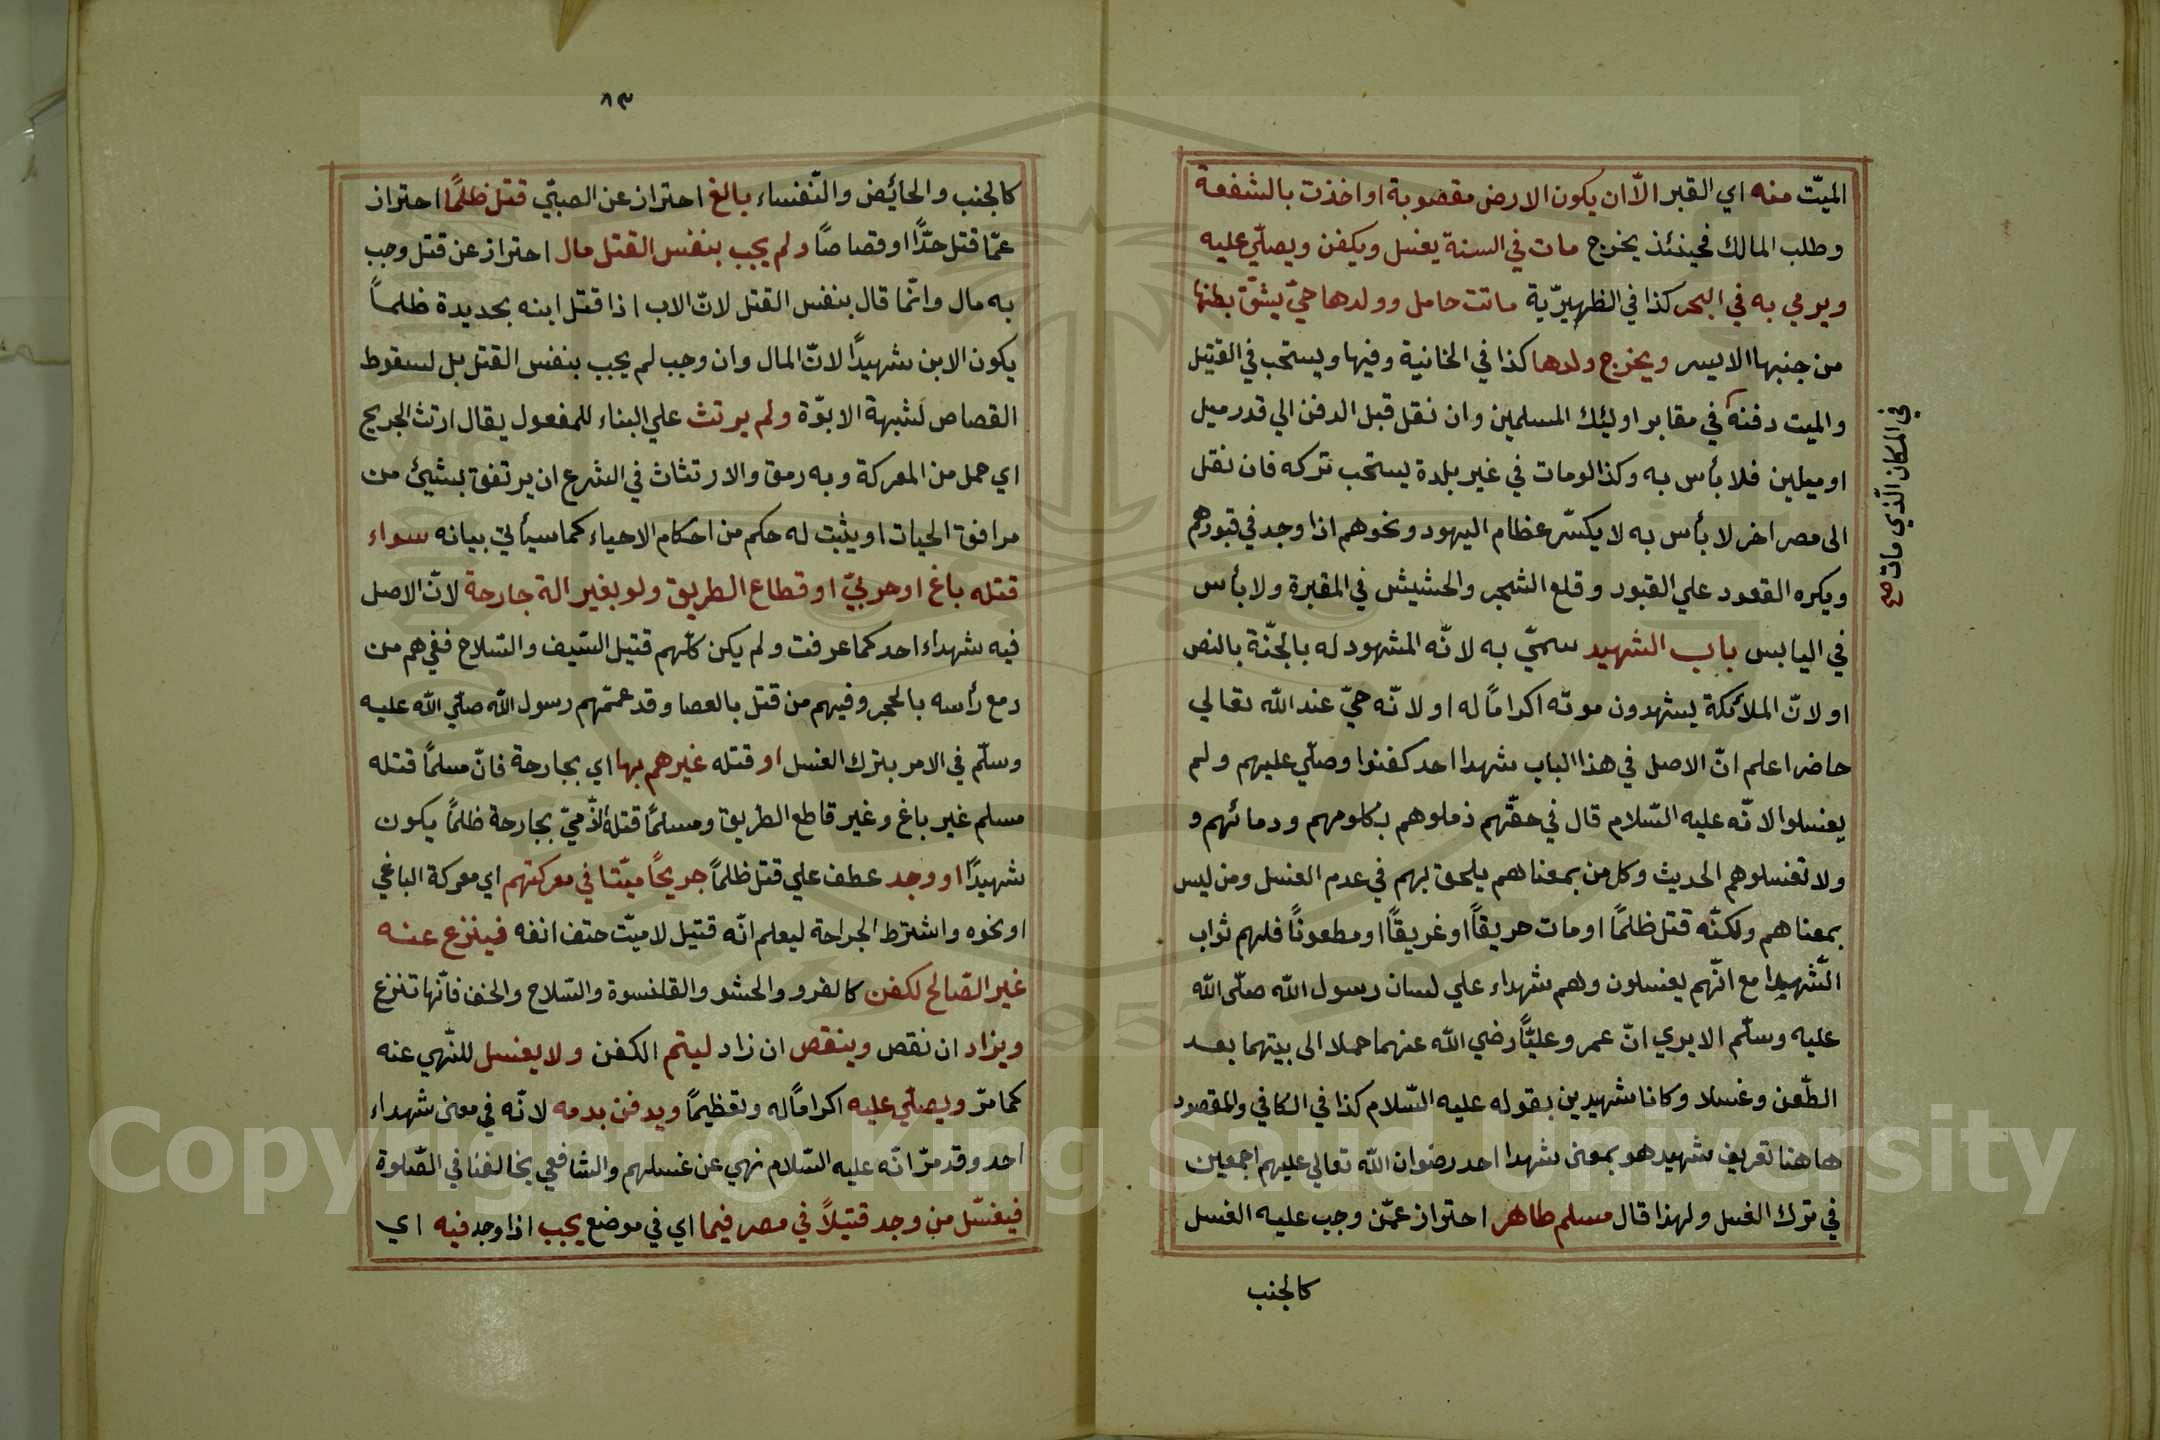 الميّت منه اي القبر الّا ان يكون الارض مقصوبة او اخذت بالشفعة
وطلب المالك فحينئذ يخرج مات في السنة يغسل ويكفن ويصلّي عليه
ويرمي به في البحر كذا في الظهيريّة ماتت حامل وولدها حيّ يشقّ بطنها
من جنبها الايسر ويخرج ولدها كذا في الخانية وفيها ويستحب في القتيل
والميت دفنه في مقابر اولئك المسلمين وان نقل قبل الدفن الي قدر ميل
او ميلين فلا بأس به وكذا لو مات في غير بلدة يستحب تركه فان نقل
الى مصر اخر لا بأس به لا يكسّر عظام اليهود ونحوهم اذا وجد في قبورهم
ويكره القعود علي القبور وقلع الشجر والحشيش في المقبرة ولا بأس
في اليابس باب الشهيد سميّ به لانّه المشهود له بالجنّة بالنص
او لانّ الملائكة يشهدون موته اكراماً له او لانّه حيّ عند الله تعالي
حاضر اعلم انّ الاصل في هذا الباب شهدا احد كفنوا وصلّي عليهم ولم
يغسلوا لانّه عليه السّلام قال في حقّهم زملوهم بكلومهم ودمائهم و
ولا تغسلوهم الحديث وكل من بمعناهم يلحق بهم في عدم الغسل ومن ليس
بمعناهم ولكنّه قتل ظلمًا او مات حريقاً او غريقاً او مطعونًا فلهم ثواب
الشّهيدا مع انّهم يغسلون وهم شهداء علي لسان رسول الله صلّى الله
عليه وسلّم الا يري انّ عمر وعليّاً رضي الله عنهما حملا الى بيتهما بعد
الطّعن وغسلا وكانا شهيدين بقوله عليه السّلام كذا في الكافي والمقصود
هاهنا تعريف شهيد هو بمعنى شهدا احد رضوان الله تعالي عليهم اجمعين
في ترك الغسل ولهذا قال مسلم طاهر احتراز عمّن وجب عليه الغسل
كالجنب
في المكان الّذي مات صح
٨٣
كالجنب والحائيض والنّفساء بالغ احتراز عن الصبّي قتل ظلمًا احتراز
عمّا قتل حدًّا او قصاصًا ولم يجب بنفس القتل مال احتراز عن قتل وجب
به مال وانّما قال بنفس القتل لانّ الاب اذا قتل ابنه بحديدة ظلماً
يكون الابن شهيدًا لانّ المال وان وجب لم يجب بنفس القتل بل لسقوط
القصاص لشبهة الابوّة ولم يرتث علي البناء للمفعول يقال ارتث الجريح
اي حمل من المعركة وبه رمق والارتثاث في الشرع ان يرتفق بشيئ من
مرافق الحيات او يثبت له حكم من احكام الاحياء كما سيأتي بيانه سواء
قتله باغ او حربيّ او قطاع الطريق ولو بغير الة جارحة لانّ الاصل
فيه شهداء احد كما عرفت ولم يكن كلّهم قتيل السّيف والسّلاح ففي هم من
دمع رأسه بالحجر وفيهم من قتل بالعصا وقد عمّهم رسول الله صلّي الله عليه
وسلّم في الامر بترك الغسل او قتله غيرهم بها اي بجارحة فانّ مسلمًا قتله
مسلم غير باغ وغير قاطع الطريق ومسلمًا قتله الذّميّ بجارحة ظلمًا يكون
شهيدًا او وجد عطف علي قتل ظلماً جريحًا ميّتا في معركتهم اي معركة الباغي
او نحوه واشترط الجراحة ليعلم انّه قتيل لا ميّت حتف انفه فينزع عنه
غير الصّالح لكفن كالفرو والحشو والقلنسوة والسّلاح والخف فانّها تنزع
ويزاد ان نقص وينقص ان زاد ليتم الكفن ولا يغسل للنّهي عنه
كما مرّ ويصلّي عليه اكراماً له وتعظيمًا ويدفن بدمه لانّه في معنى شهداء
احد وقد مرّ انّه عليه السّلام نهي عن غسلهم والشافعي يخالفنا في الصّلوة
فيغسّل من وجد قتيلاً في مصر فيما اي في موضع يجب اذا وجد فيه اي
Copyright © King Saud University
1957